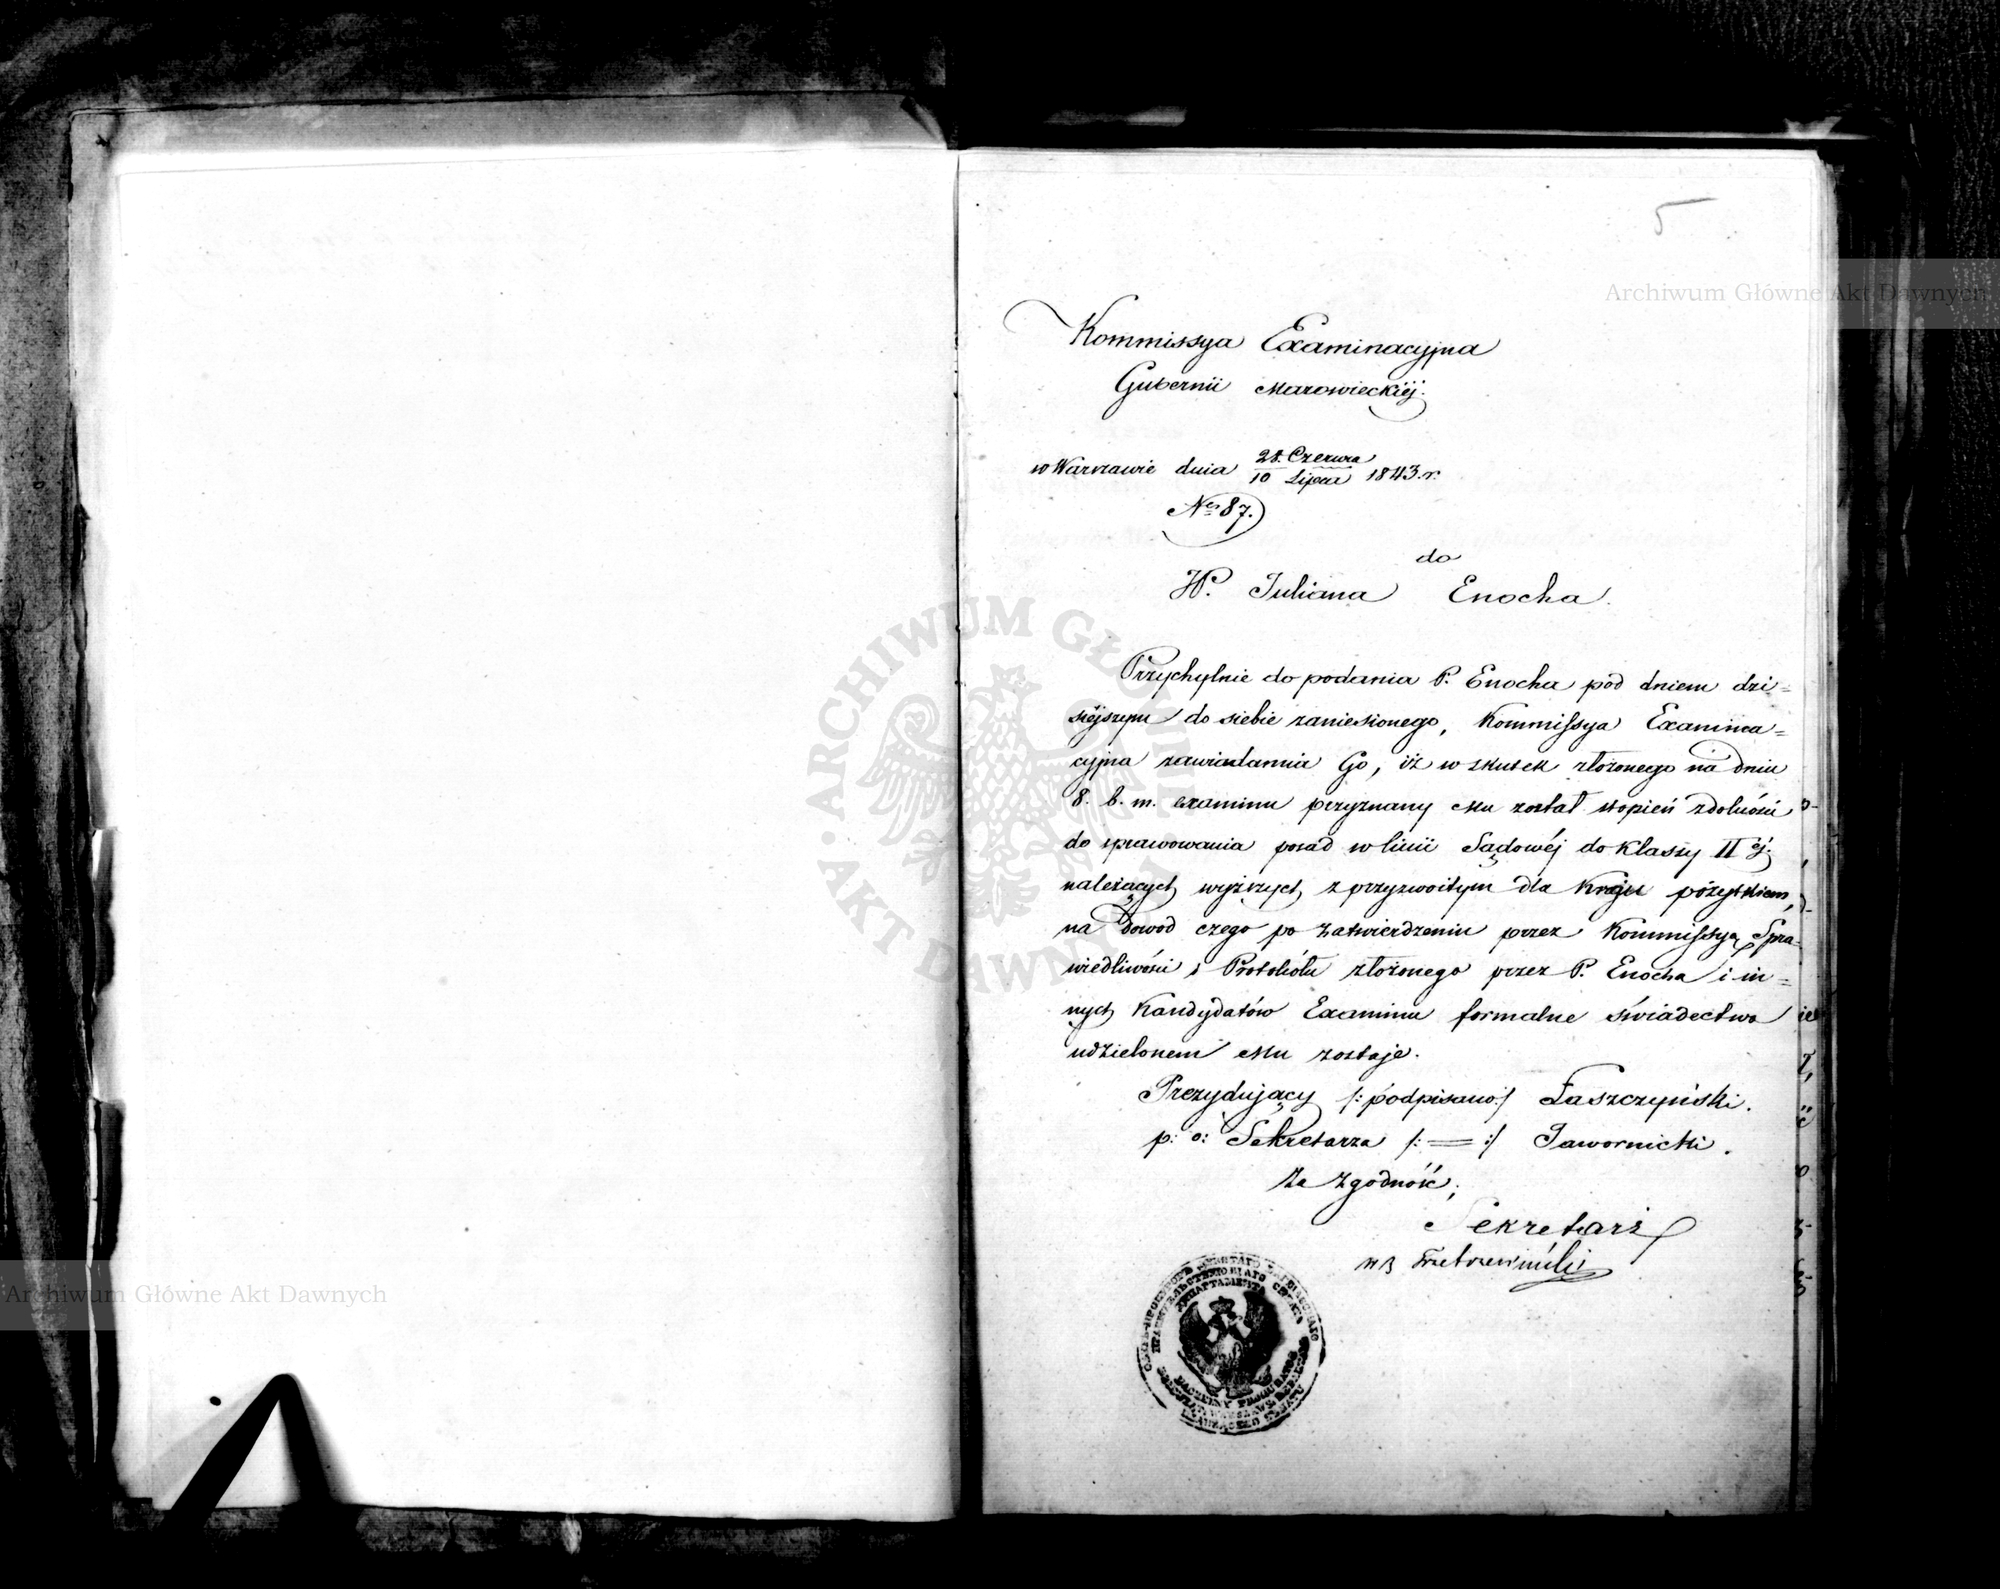 5
Archiwum Główne Akt Dawnych
Kommissya Examinacyjna
Gubernii Mazowieckiéj.
w Warszawie dnia 28. Czerwca / 10 Lipca 1843. r.
№ 87.
do
W. Juliana Enocha.
Przychylnie do podania P. Enocha pod dniem dzi=
siéjszym do siebie zaniesionego, Kommissya Examina=
cyjna zawiadamia Go, iż w skutek złożonego na dniu
8. b. m. examinu przyznany Mu został stopień zdolności
do sprawowania posad w linii Sądowéj do Klassy II éj.
należących wyższych z przyzwoitym dla Kraju pożytkiem,
na dowod czego po zatwierdzeniu przez Kommissyą Spra-
wiedliwości Protokółu złożonego przez P. Enocha i in=
nych Kandydatów Examinu formalne świadectwo
udzielonem Mu zostaje.
Prezydujący /:podpisano:/ Łaszczyński.
p: o: Sekretarza /: = :/ Jawornicki.
Za Zgodność;
Sekretarz
Archiwum Główne Akt Dawnych
ARCHIWUM GŁÓWNE AKT DAWNYCH